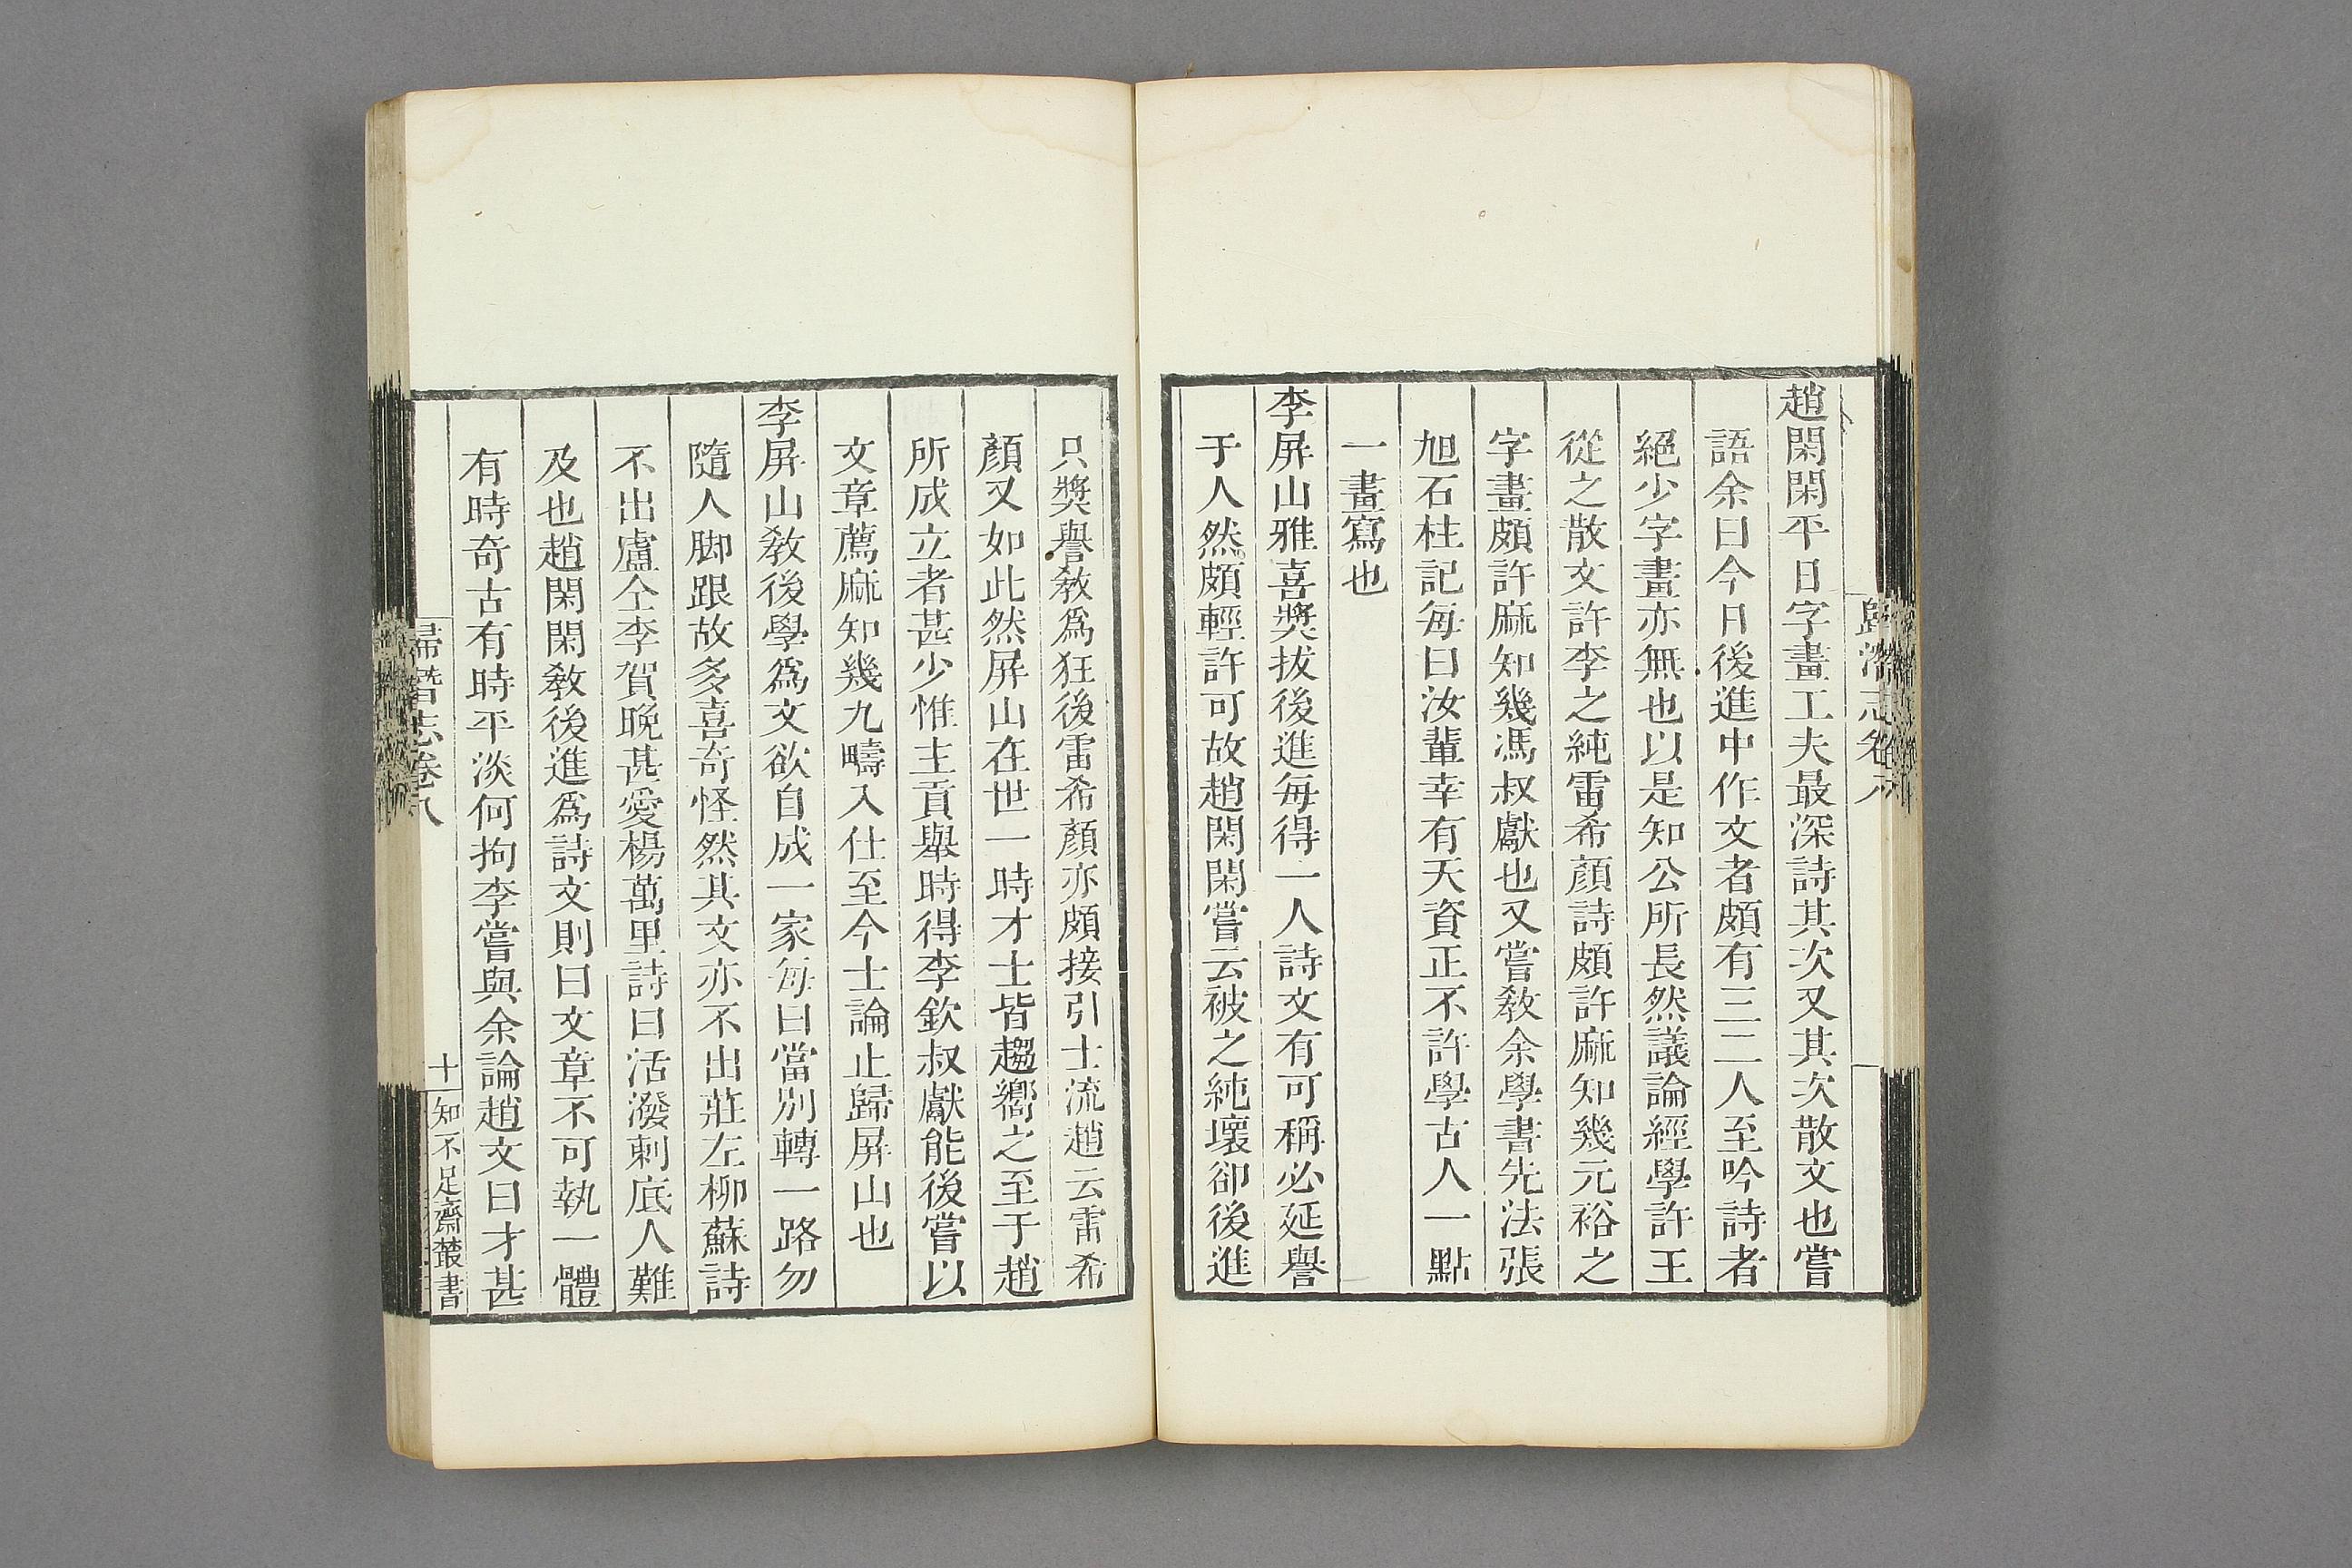 歸潛志卷八
趙閑閑平日字畫工夫最深詩其次又其次散文也嘗
語余曰今日後進中作文者頗有三二人至吟詩者
絕少字畫亦無也以是知公所長然議論經學許王
從之散文許李之純雷希顏詩頗許麻知幾元裕之
字畫頗許麻知幾馮叔獻也又嘗敎余學書先法張
旭石柱記每曰汝輩幸有天資正不許學古人一點
一畫寫也
李屏山雅喜奬拔後進每得一人詩文有可稱必延譽
于人然頗輕許可故趙閑閑嘗云被之純壞卻後進
只奬譽敎爲狂後雷希顏亦頗接引士流趙云雷希
顏又如此然屏山在世一時才士皆趨嚮之至于趙
所成立者甚少惟主貢舉時得李欽叔獻能後嘗以
文章薦麻知幾九疇入仕至今士論止歸屏山也
李屏山敎後學爲文欲自成一家每曰當別轉一路勿
隨人脚跟故多喜奇怪然其文亦不出莊左柳蘇詩
不出盧仝李賀晚甚愛楊萬里詩曰活潑剌底人難
及也趙閑閑敎後進爲詩文則曰文章不可執一體
有時奇古有時平淡何拘李嘗與余論趙文曰才甚
歸潛志卷八
十
知不足齋叢書